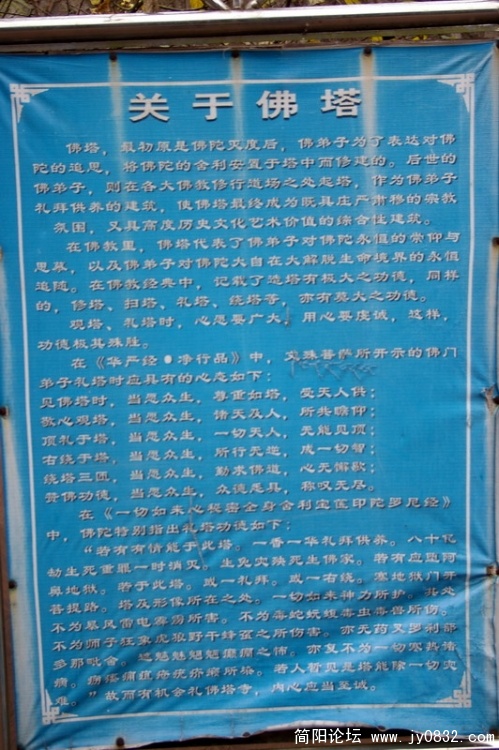 关于佛塔
佛塔，最初原是佛陀灭度后，佛弟子为了表达对佛
陀的追思，将佛陀的舍利安置于塔中而修建的。后世的
佛弟子，则在各大佛教修行道场之处起塔，作为佛弟子
礼拜供养的建筑，使佛塔最终成为既具庄严肃穆的宗教
氛围，又具高度历史文化艺术价值的综合性建筑。
在佛教里，佛塔代表了佛弟子对佛陀永恒的崇仰与
思慕，以及佛弟子对佛陀大自在大解脱生命境界的永恒
追随。在佛教经典中，记载了造塔有极大之功德，同样
的，修塔、扫塔、礼塔、绕塔等，亦有莫大之功德。
观塔、礼塔时，心愿要广大，用心要虔诚，这样，
功德极其殊胜。
在《华严经·净行品》中，文殊菩萨所开示的佛门
弟子礼塔时应具有的心态如下：
见佛塔时，当愿众生，尊重如塔，受天人供；
敬心观塔，当愿众生，诸天及人，所共瞻仰；
顶礼于塔，当愿众生，一切天人，无能见顶；
右绕于塔，当愿众生，所行无逆，成一切智；
绕塔三匝，当愿众生，勤求佛道，心无懈歇；
赞佛功德，当愿众生，众德悉具，称叹无尽。
在《一切如来心秘密全身舍利宝箧印陀罗尼经》
中，佛陀特别指出礼塔功德如下：
“若有有情能于此塔。一香一华礼拜供养。八十亿
劫生死重罪一时消灭。生免灾殃死生佛家。若有应堕阿
鼻地狱。若于此塔。或一礼拜。或一右绕。塞地狱门开
菩提路。塔及形像所在之处。一切如来神力所护。其处
不为暴风雷电霹雳所害。不为毒蛇蚖蝮毒虫毒兽所伤。
不为师子狂象虎狼野干蜂虿之所伤害。亦无药叉罗刹部
多那毗舍。魑魅魍魉癫痫之怖。亦复不为一切寒热诸
病。疬瘘痈疽疮疣疥癞所染。若人暂见是塔能除一切灾
难。”故而有机会礼佛塔寺，内心应当至诚。
简阳论坛 www.jy0832.com